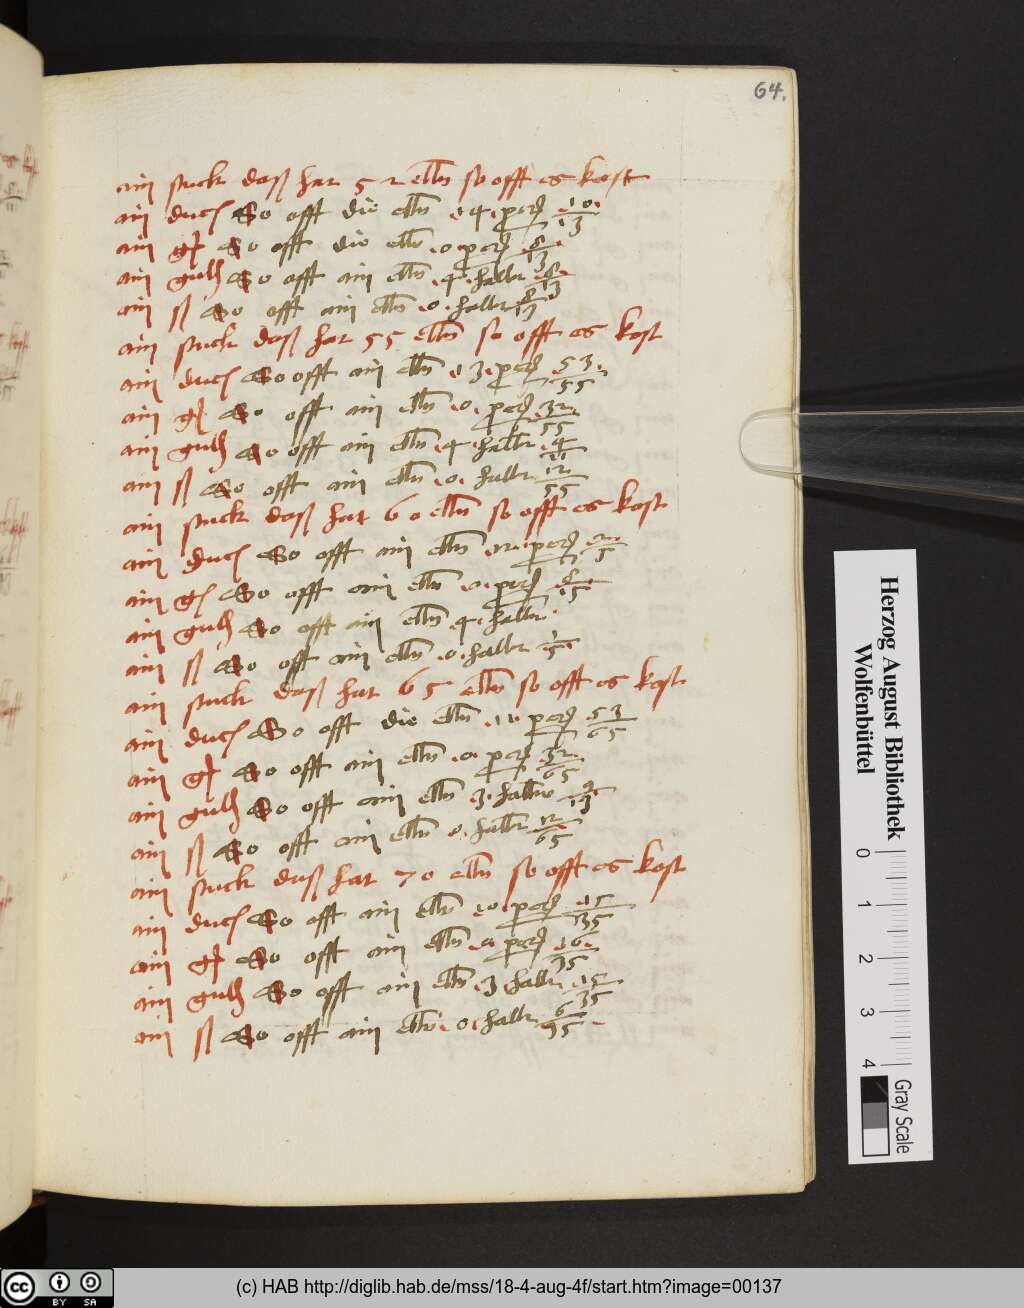 64.
ain stuck daß hat 52 elln so offt es kost
ain duc So offt die elln .14. perd 10/13
ain gſ So offt die elln .0. perd 8/13
ain guld So offt ain elln .4. hallr 8/13
ain ß So offt ain elln .0. hallr 3/13
ain stuck daß hat 55 elln so offt es kost
ain duc So offt ain elln .13. perd 53/55
ain gſ So offt ain elln .0. perd 32/55
ain guld So offt ain elln .4. hallr 4/11
ain ß So offt ain elln .0. hallr 12/55
ain stuck daß hat 60 elln so offt es kost
ain duc So offt ain elln .12. perd
ain gſ So offt ain elln .0. perd 8/15
ain guld So offt ain elln .4. hallr
ain ß So offt ain elln .0. hallr 1/5
ain stuck daß hat 65 elln so offt es kost
ain duc So offt die elln .11. perd 53/65
ain gſ So offt ain elln .0. perd 32/65
ain guld So offt ain elln .3. hallr 9/13
ain ß So offt ain elln .0. hallr 12/65
ain stuck daß hat 70 elln so offt es kost
ain duc So offt ain elln .10. perd
ain gſ So offt ain elln .0. perd 16/35
ain guld So offt ain elln .3. hallr 15/35
ain ß So offt ain elln .0. hallr 6/35
Herzog August Bibliothek
Wolfenbüttel
0 1 2 3 4
Gray Scale
cc BY SA
(c) HAB http://diglib.hab.de/mss/18-4-aug-4f/start.htm?image=00137